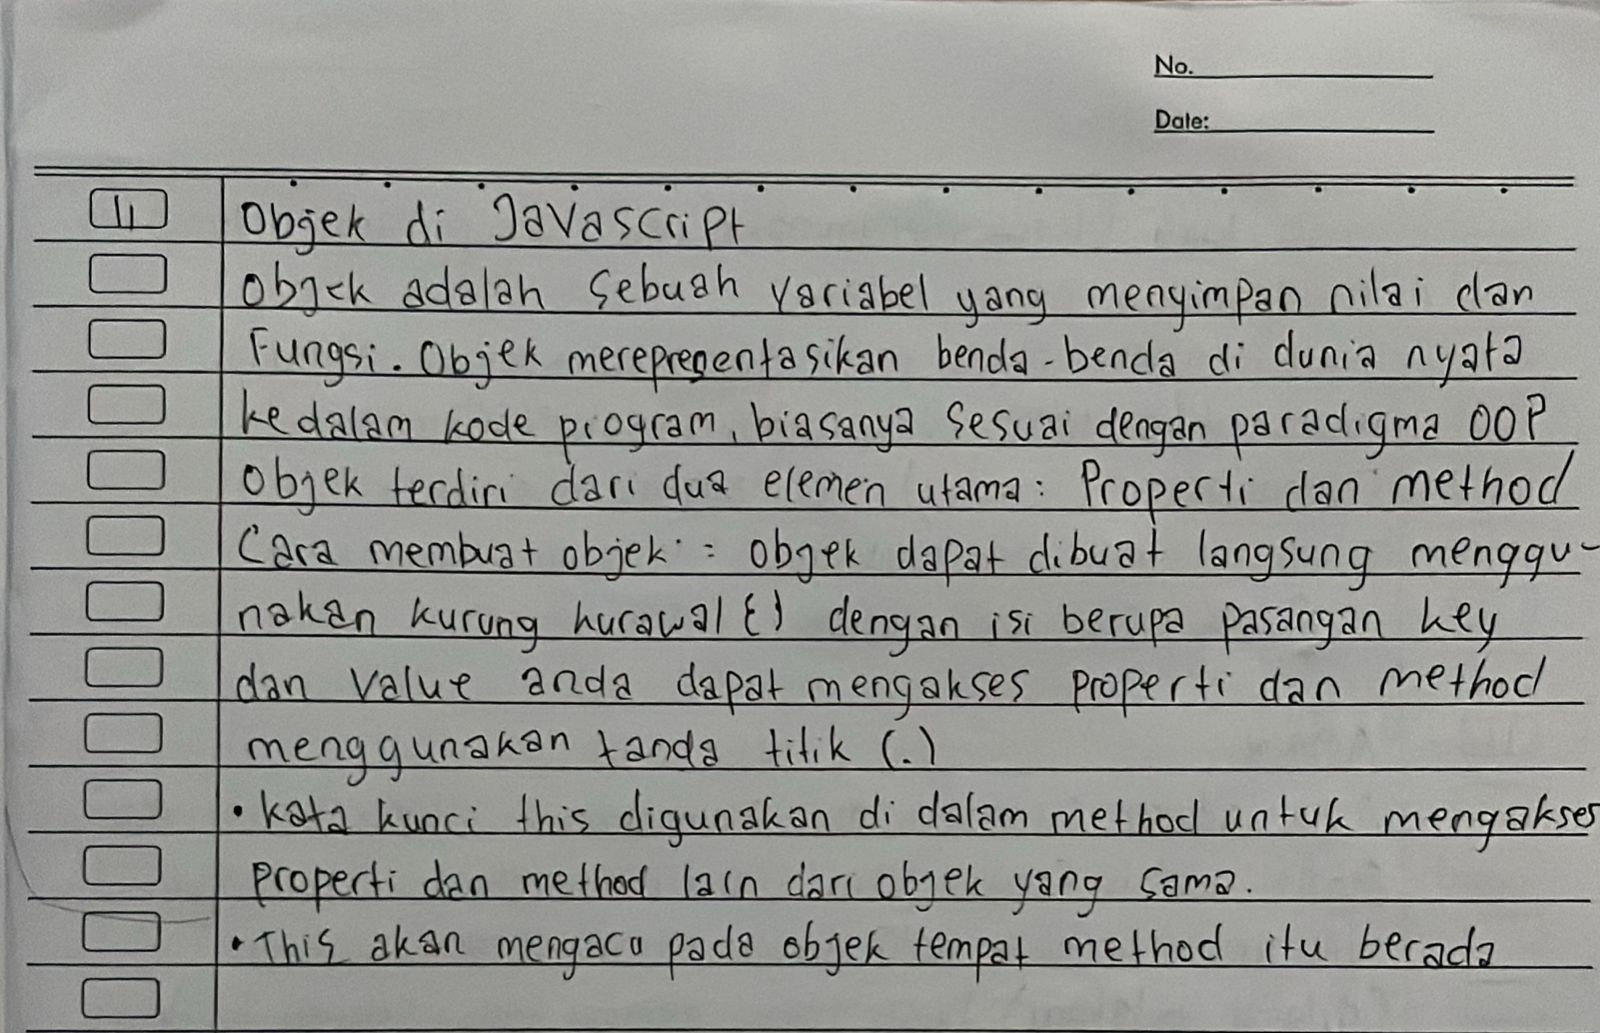 No.
Date:
4 Objek di Javascript
Objek adalah sebuah variabel yang menyimpan nilai dan
Fungsi. Objek merepresentasikan benda-benda di dunia nyata
kedalam kode program, biasanya sesuai dengan paradigma OOP
Objek terdiri dari dua elemen utama: Properti dan method
Cara membuat objek : objek dapat dibuat langsung menggu-
nakan kurung kurawal {} dengan isi berupa pasangan key
dan value anda dapat mengakses properti dan method
menggunakan tanda titik (.)
• kata kunci this digunakan di dalam method untuk mengakses
properti dan method lain dari objek yang sama.
• This akan mengacu pada objek tempat method itu berada